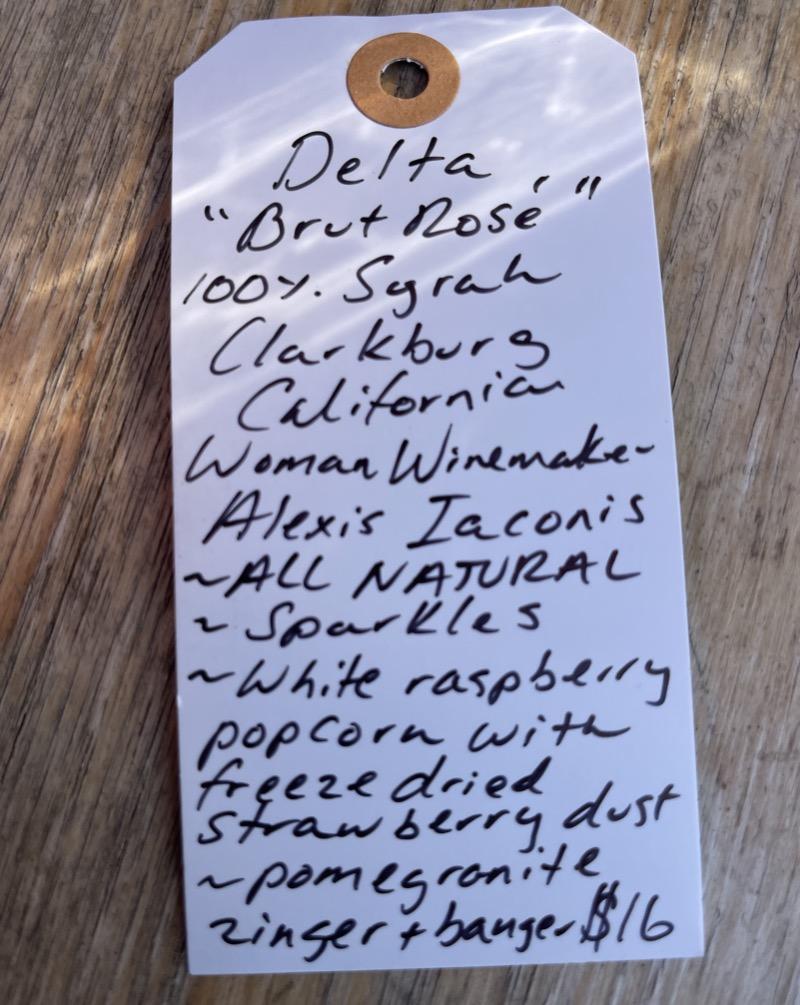 Delta
"Brut Rosé"
100% Syrah
Clarkburg
California
Woman Winemaker
Alexis Iaconis
~ALL NATURAL
~Sparkles
~White raspberry
popcorn with
freeze dried
strawberry dust
~pomegranite
zinger + banger $16